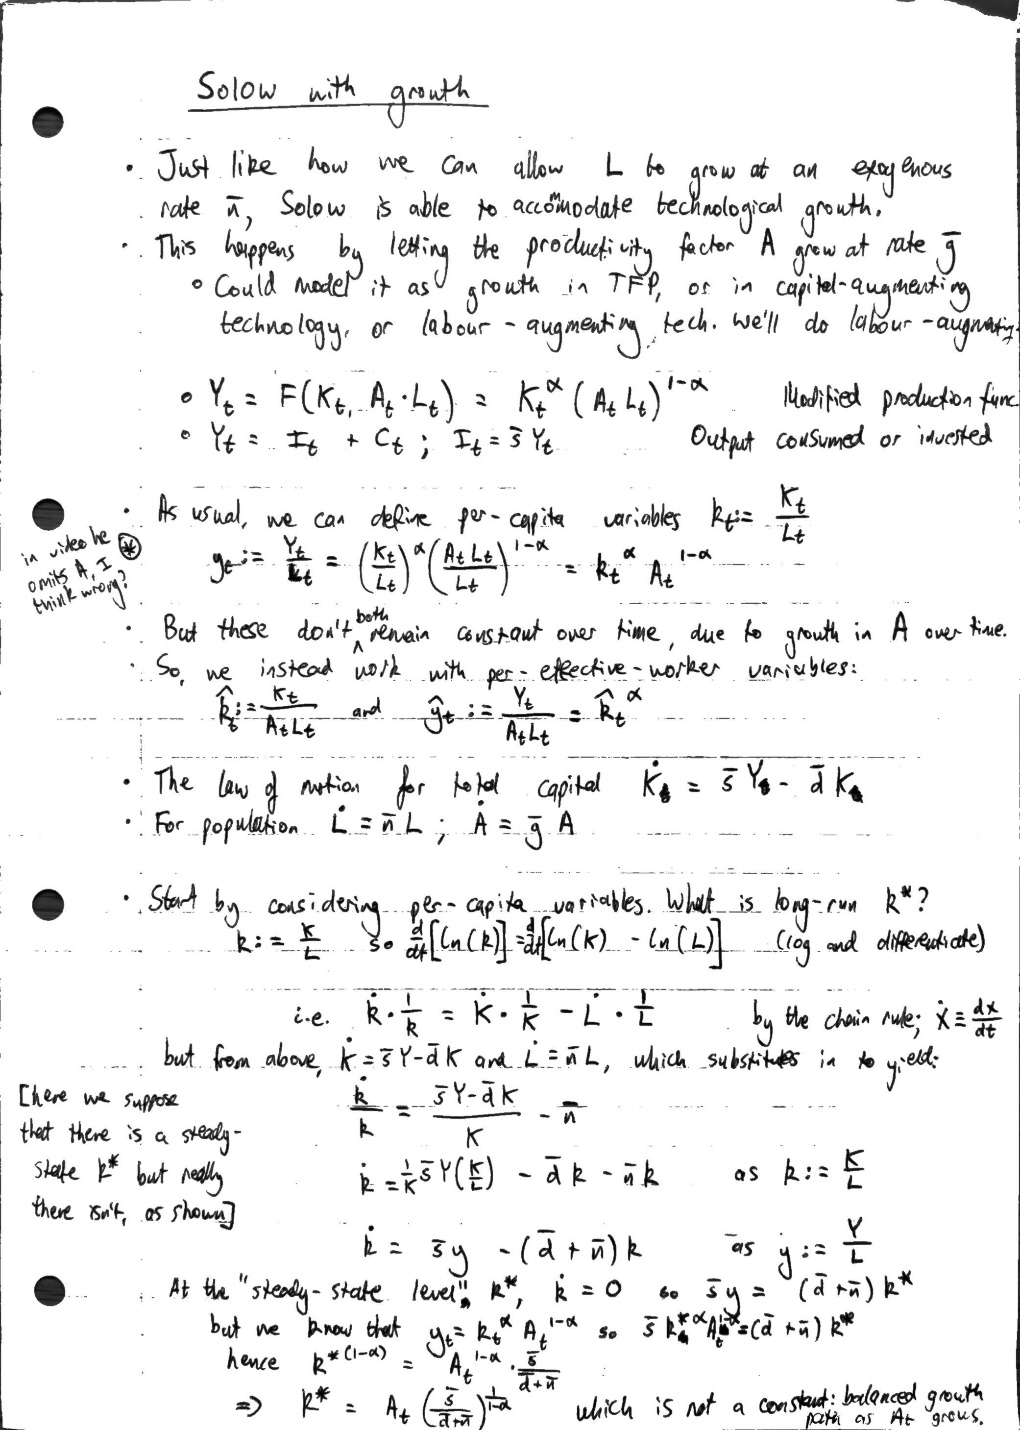 Solow with growth
• Just like how we can allow L to grow at an exogenous
rate n̄, Solow is able to accommodate technological growth.
• This happens by letting the productivity factor A grow at rate ḡ
∘ Could model it as growth in TFP, or in capital-augmenting
technology, or labour-augmenting tech. We'll do labour-augmenting.
∘ Y_t = F(K_t, A_t·L_t) = K_t^α (A_t L_t)^{1-α} Modified production func
∘ Y_t = I_t + C_t ; I_t = s̄ Y_t Output consumed or invested
• As usual, we can define per-capita variables k_t := K_t/L_t
in video he ⊛
omits A, I
think wrong?
y_t := Y_t/L_t = (K_t/L_t)^α (A_t L_t/L_t)^{1-α} = k_t^α A_t^{1-α}
• But these don't both remain constant over time, due to growth in A over time.
• So, we instead work with per-effective-worker variables:
k̂_t := K_t/(A_t L_t) and ŷ_t := Y_t/(A_t L_t) = k̂_t^α
• The law of motion for total capital K̇ = s̄ Y - d̄ K
• For population L̇ = n̄ L ; Ȧ = ḡ A
• Start by considering per-capita variables. What is long-run k*?
k := K/L so d/dt[ln(k)] = d/dt[ln(K) - ln(L)] (log and differentiate)
i.e. k̇ · 1/k = K̇ · 1/K - L̇ · 1/L by the chain rule; ẋ ≡ dx/dt
but from above, K̇ = s̄Y - d̄K and L̇ = n̄L, which substitutes in to yield:
[here we suppose
that there is a steady-
state k* but really
there isn't, as shown]
k̇/k = (s̄Y - d̄K)/K - n̄
k̇ = 1/K s̄Y(K/L) - d̄k - n̄k as k := K/L
k̇ = s̄y - (d̄ + n̄)k as y := Y/L
At the "steady-state level", k*, k̇ = 0 so s̄y = (d̄ + n̄) k*
but we know that y_t = k_t^α A_t^{1-α} so s̄ k*^α A_t^{1-α} = (d̄ + n̄) k*
hence k*^{(1-α)} = A_t^{1-α} · s̄/(d̄+n̄)
⇒ k* = A_t (s̄/(d̄+n̄))^{1/(1-α)} which is not a constant: balanced growth
path as A_t grows.